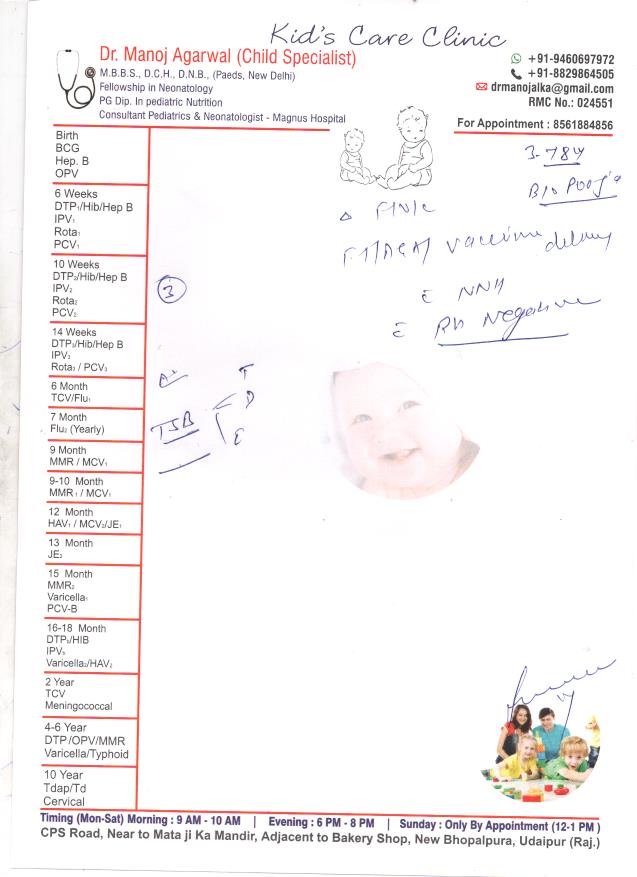 Kid's Care Clinic
Dr. Manoj Agarwal (Child Specialist)
M.B.B.S., D.C.H., D.N.B., (Paeds, New Delhi)
Fellowship in Neonatology
PG Dip. In pediatric Nutrition
Consultant Pediatrics & Neonatologist - Magnus Hospital
+91-9460697972
+91-8829864505
drmanojalka@gmail.com
RMC No.: 024551
For Appointment : 8561884856
B/o Pooja
Vaccine
NNH
Rh Negative
3
TSB
T
D
E
Birth
BCG
Hep. B
OPV
6 Weeks
DTP₁/Hib/Hep B
IPV₁
Rota₁
PCV₁
10 Weeks
DTP₂/Hib/Hep B
IPV₂
Rota₂
PCV₂
14 Weeks
DTP₃/Hib/Hep B
IPV₃
Rota₃ / PCV₃
6 Month
TCV/Flu₁
7 Month
Flu₂ (Yearly)
9 Month
MMR / MCV₁
9-10 Month
MMR₁ / MCV₁
12 Month
HAV₁ / MCV₂/JE₁
13 Month
JE₂
15 Month
MMR₂
Varicella₁
PCV-B
16-18 Month
DTP₅/HIB
IPV₅
Varicella₂/HAV₂
2 Year
TCV
Meningococcal
4-6 Year
DTP/OPV/MMR
Varicella/Typhoid
10 Year
Tdap/Td
Cervical
Timing (Mon-Sat) Morning : 9 AM - 10 AM | Evening : 6 PM - 8 PM | Sunday : Only By Appointment (12-1 PM )
CPS Road, Near to Mata ji Ka Mandir, Adjacent to Bakery Shop, New Bhopalpura, Udaipur (Raj.)